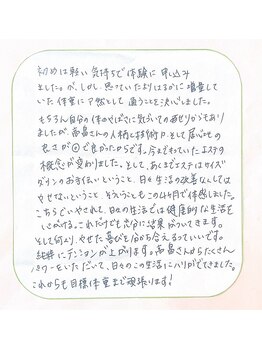 初めは軽い気持ちで体験に申し込み
ました。が、しかし、思っていたよりはるかに増量して
いた体重にア然として通うことを決心しました。
もちろん自分の体のやばさに気づいてのあせりからもあり
ましたが、西畠さんの人柄と技術力、そして居心地の
良さが◎で良かったからです。今までもっていたエステの
概念が変わりました。そして、あくまでエステはサイズ
ダウンのお手伝いということ、日々の生活の改善なくしては
やせないということ、そういうこともこの4ヶ月で体感しました。
こちらでいやされて、日々の生活では健康的な生活を
心がける。これだけでも充分に結果がついてきます。
そして何より、やせた喜びを分かち合えるっていいです。
純粋にテンションが上がります。西畠さんからたくさん
パワーをいただいて、日々のこの生活にハリがでてきました。
これからも目標体重まで頑張ります!